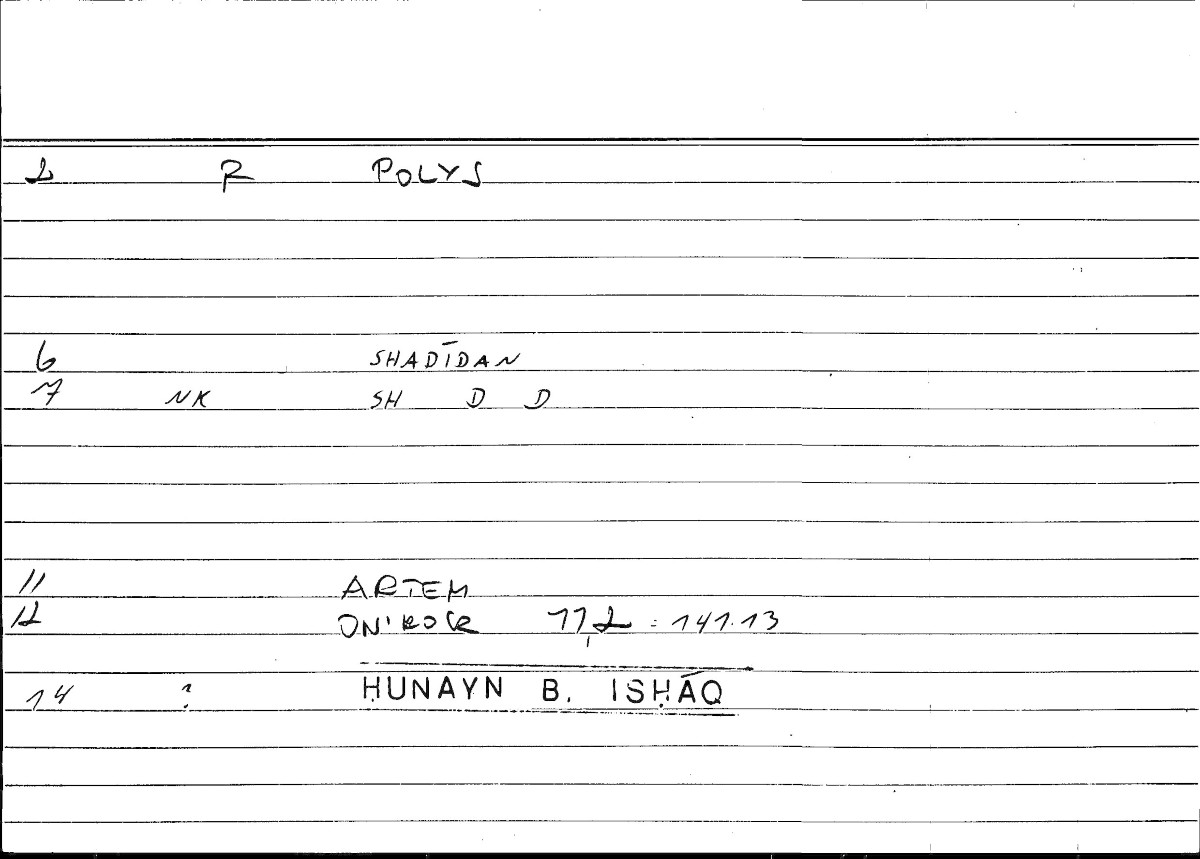 2 R POLYS
6 SHADĪDAN
7 NK SH D D
11 ARTEM
12 ON'ROCR 77,2 : 141.13
14 ? ḤUNAYN B. ISḤĀQ